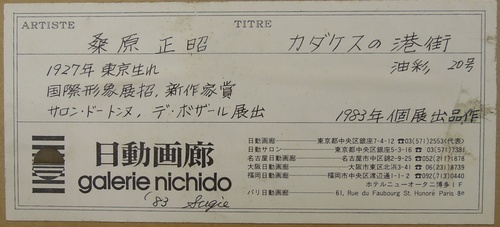 ARTISTE TITRE
桑原 正昭 カダケスの港街
1927年 東京生れ 油彩, 20号
国際形象展招, 新作家賞
サロン・ドートンヌ, デ・ボザール展出 1983年個展出品作
日動画廊
galerie nichido
'83 Sugie
日動画廊 東京都中央区銀座7-4-12 ☎03(571)2553(代表)
日動サロン 東京都中央区銀座5-3-16 ☎03(571)7381
名古屋日動画廊 名古屋市中区錦2-9-25 ☎052(211)1878
大阪日動画廊 大阪市東区北浜3-41 ☎06(231)8739
福岡日動画廊 福岡市中央区渡辺通1-1-2 ☎092(713)0440
ホテルニューオータニ博多1F
パリ日動画廊 61, Rue du Faubourg St. Honoré Paris 8e